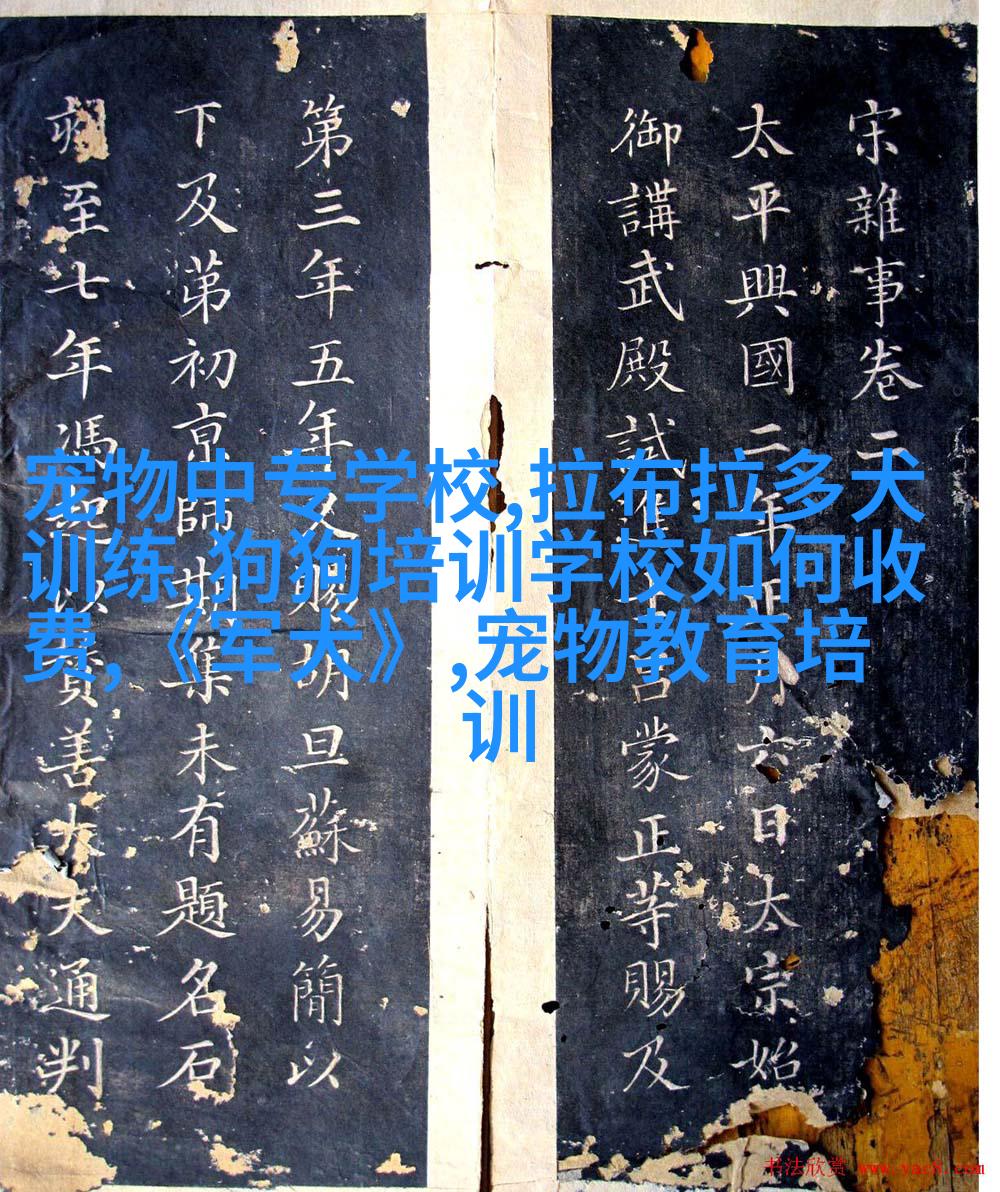 宋雜事卷二
太平興國二年正月六日太宗始
御講武殿試進士呂蒙正等賜及
第三年五年又賜胡旦蘇易簡以
下及第初京師期集未有題名石
至七年馮起以賛善大夫通判
宠物中专学校,拉布拉多犬
训练,狗狗培训学校如何收
费,《军犬》,宠物教育培
训
书法欣赏 www.yac8.com